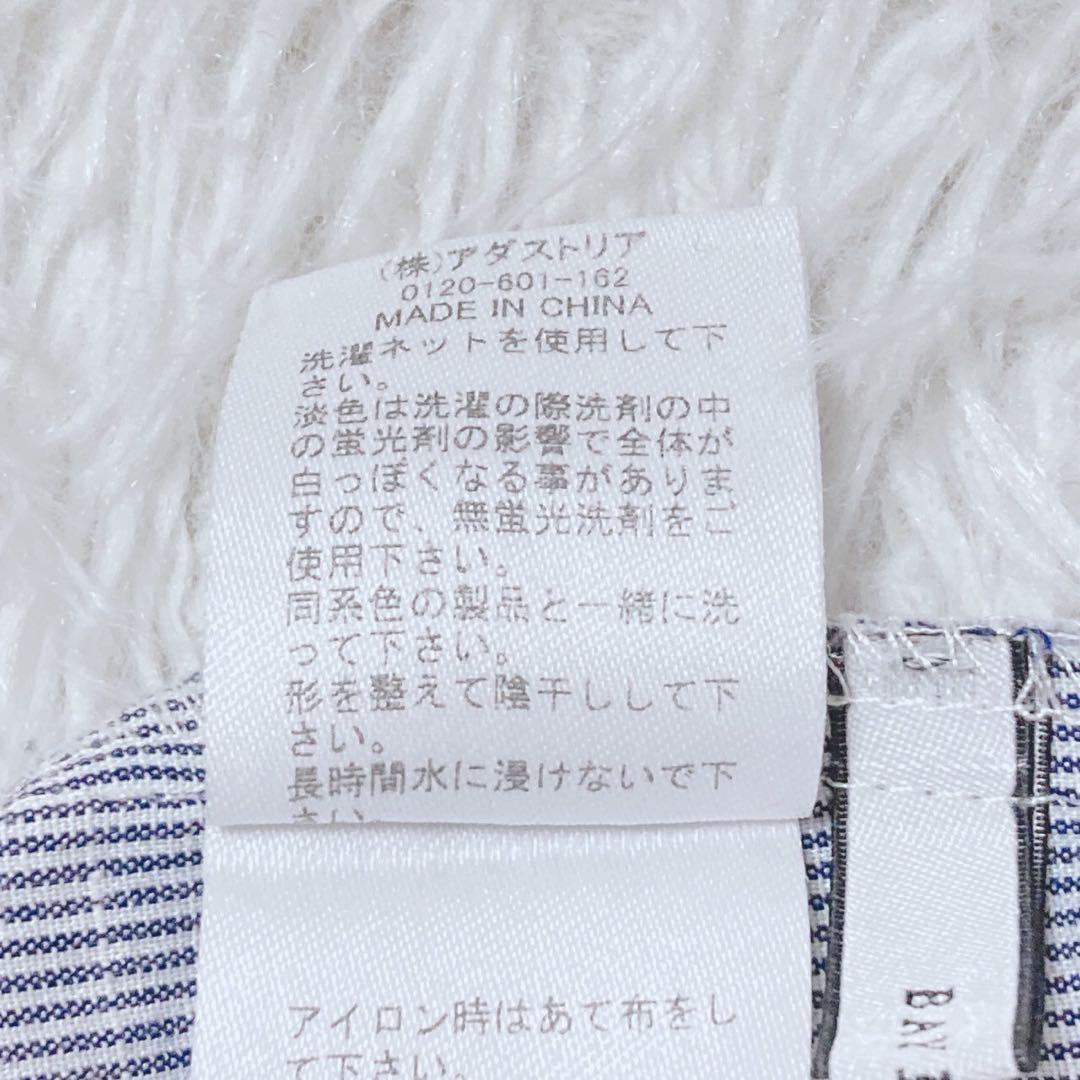 (株)アダストリア
0120-601-162
MADE IN CHINA
洗濯ネットを使用して下
さい。
淡色は洗濯の際洗剤の中
の蛍光剤の影響で全体が
白っぽくなる事がありま
すので、無蛍光洗剤をご
使用下さい。
同系色の製品と一緒に洗
って下さい。
形を整えて陰干しして下
さい。
長時間水に浸けないで下
さい
アイロン時はあて布をし
て下さい。
BAY